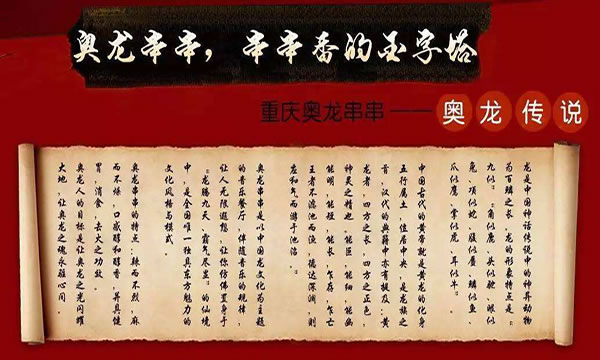 奥龙串串，串串香的金字塔
重庆奥龙串串——奥龙传说
龙是中国神话传说中的神异动物
为百鳞之长，龙的形象特点是："
九似"："角似鹿、头似驼、眼似
兔、项似蛇、腹似蜃、鳞似鱼、
爪似鹰、掌似虎、耳似牛"。
中国古代的黄帝就是黄龙的化身
五行属土，位居中央，是龙族之
首，汉代的典籍中亦有提及：黄
龙者，四方之长，四方之正色，
神灵之精也，能巨，能细，能幽
能明，能短，能长，乍存，乍亡
王者不漉池而渔，德达深渊，则
应和气而游于池沼。
奥龙串串是以中国龙文化为主题
的音乐餐厅，伴随音乐的规律，
让人无限遐想，让你仿佛置身于
"龙腾九天、霸气尽显"的仙境
中，是全国唯一独具东方魅力的
文化风格与模式。
奥龙串串的特点：辣而不烈，麻
而不燥，口感醇和醇香，并具健
胃、消食、去火之功效。
奥龙人的目标是让奥龙之光闪耀
大地，让奥龙之魂永驻心间。